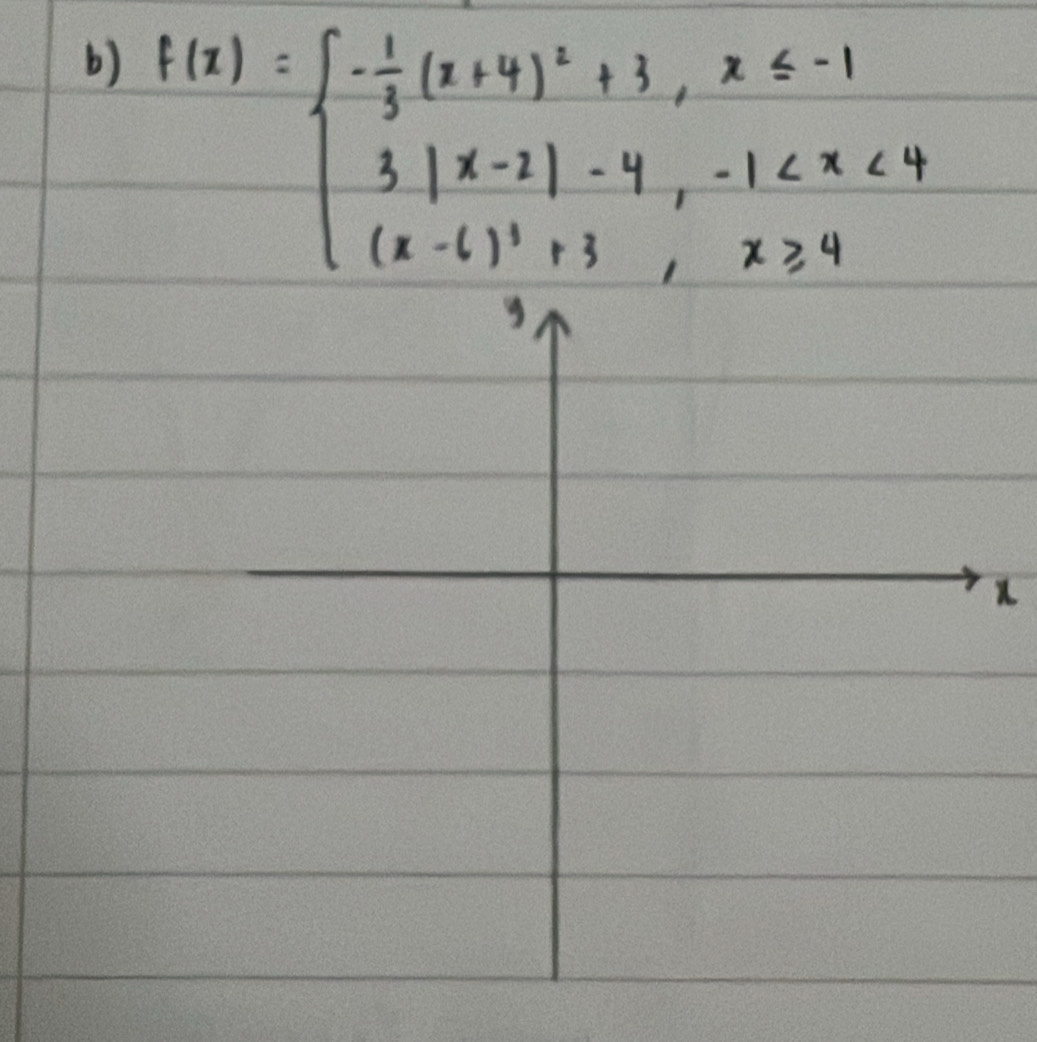 b) f(x) = { -1/3 (x+4)² + 3 , x ≤ -1
3 |x-2| - 4 , -1 < x < 4
(x-6)³ + 3 , x ≥ 4
y
x